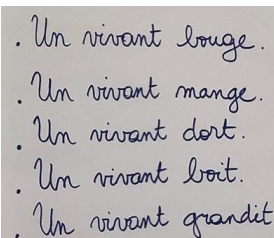 . Un vivant bouge.
. Un vivant mange.
. Un vivant dort.
. Un vivant boit.
. Un vivant grandit